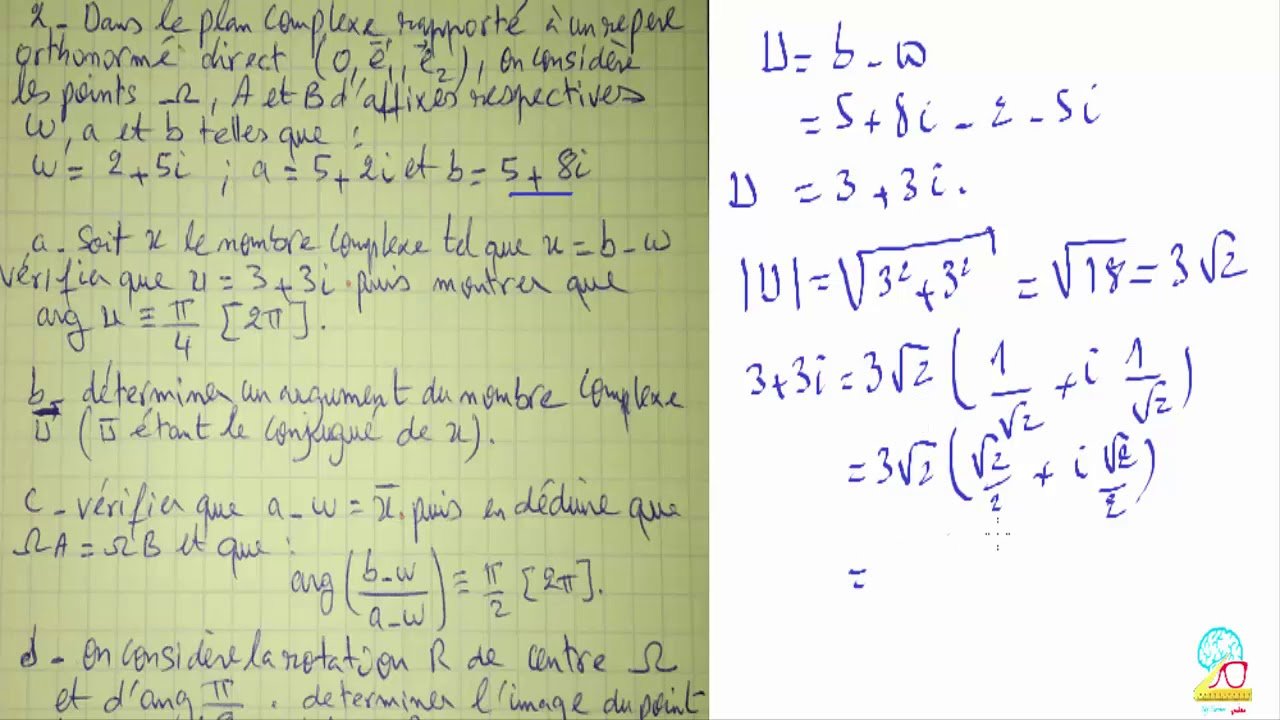 2- Dans le plan complexe rapporté à un repère
orthonormé direct (O, e⃗₁, e⃗₂), on considère
les points Ω, A et B d'affixes respectives
w, a et b telles que :
w = 2+5i ; a = 5+2i et b = 5+8i
a- Soit x le nombre complexe tel que u = b-w
vérifier que u = 3+3i. puis montrer que
arg u ≡ π/4 [2π].
b- déterminer un argument du nombre complexe
ū (ū étant le conjugué de x).
c- vérifier que a-w = x̄. puis en déduire que
ΩA = ΩB et que :
arg((b-w)/(a-w)) ≡ π/2 [2π].
d- on considère la rotation R de centre Ω
et d'ang π/2. determiner l'image du point
U = b - w
= 5 + 8i - 2 - 5i
U = 3 + 3i.
|U| = √(3²+3²) = √18 = 3√2
3+3i = 3√2 (1/√2 + i 1/√2)
= 3√2 (√2/2 + i √2/2)
=